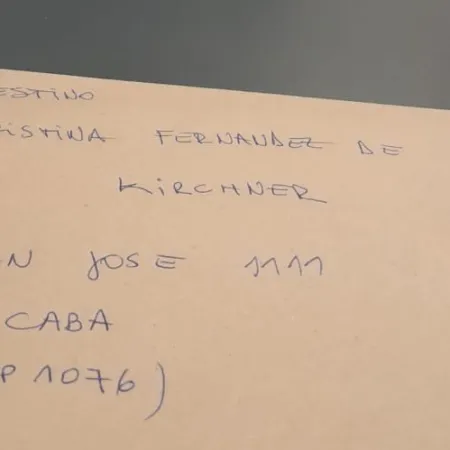 ESTINO
ISTINA FERNANDEZ DE
KIRCHNER
N JOSE 1111
CABA
P 1076)